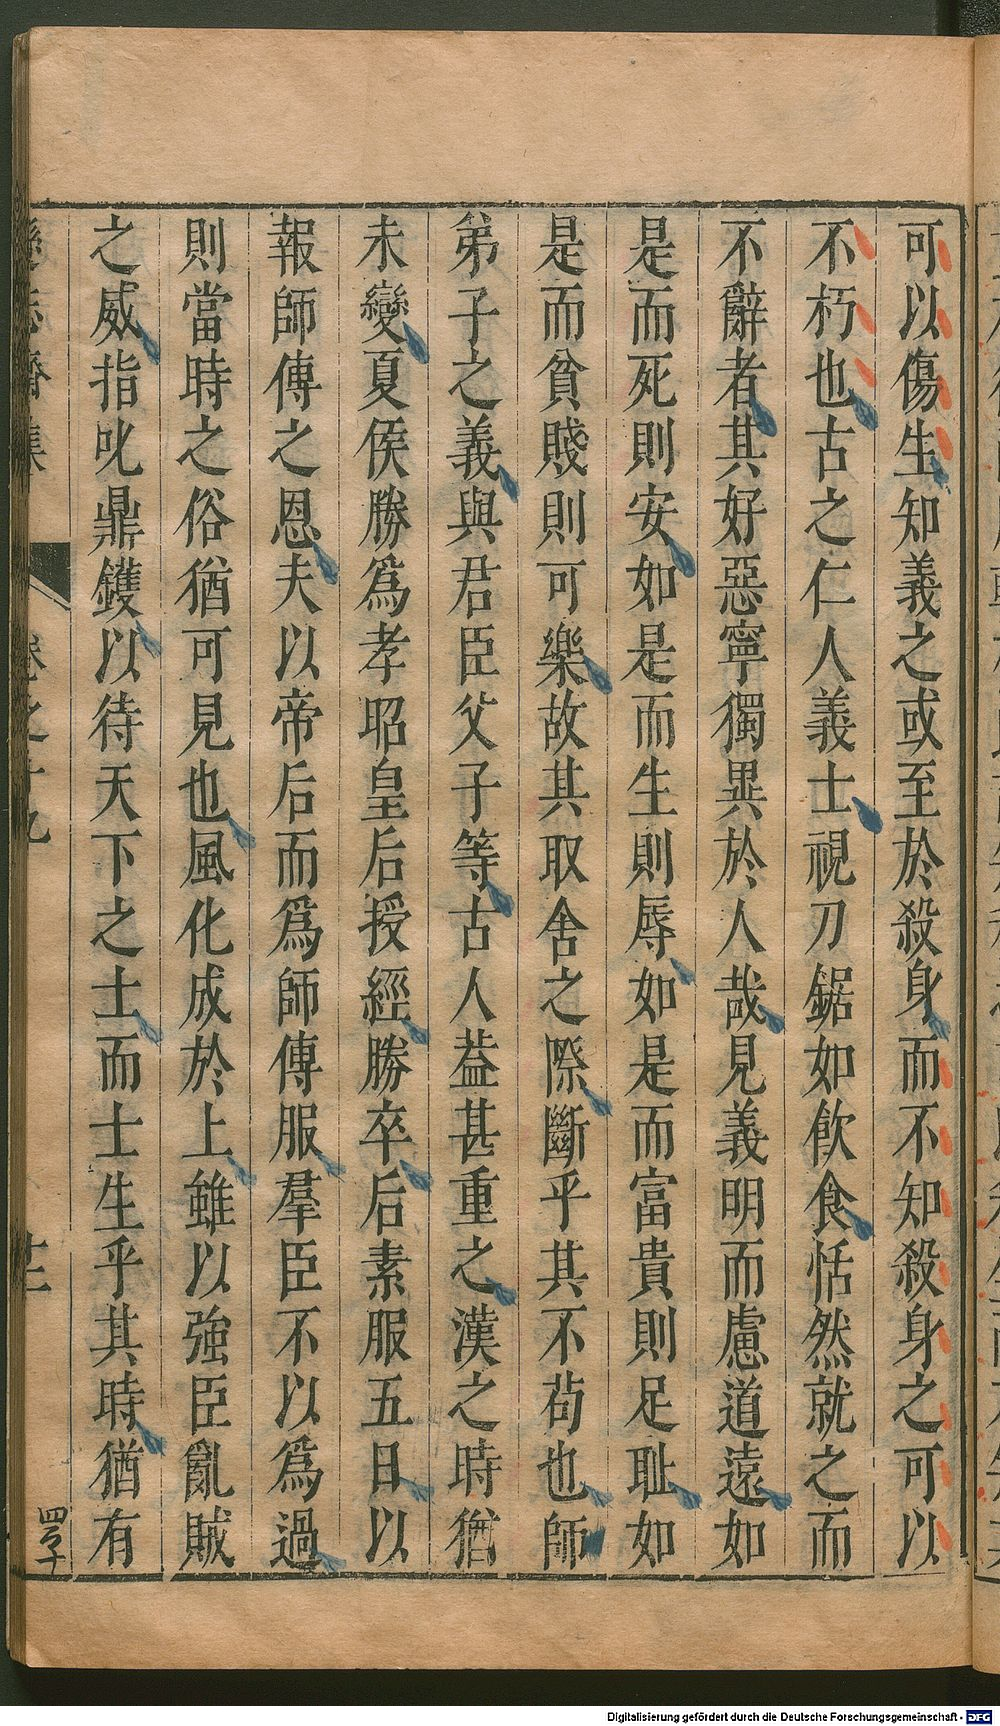 可以傷生知義之或至於殺身而不知殺身之可以
不朽也古之仁人義士視刀鋸如飲食恬然就之而
不辭者其好惡寧獨異於人哉見義明而慮道遠如
是而死則安如是而生則辱如是而富貴則足耻如
是而貧賤則可樂故其取舍之際斷乎其不茍也師
弟子之義與君臣父子等古人葢甚重之漢之時猶
未變夏侯勝爲孝昭皇后授經勝卒后素服五日以
報師傅之恩夫以帝后而爲師傅服羣臣不以爲過
則當時之俗猶可見也風化成於上雖以強臣亂賊
之威指叱鼎鑊以待天下之士而士生乎其時猶有
卷之十九
Digitalisierung gefördert durch die Deutsche Forschungsgemeinschaft - DFG